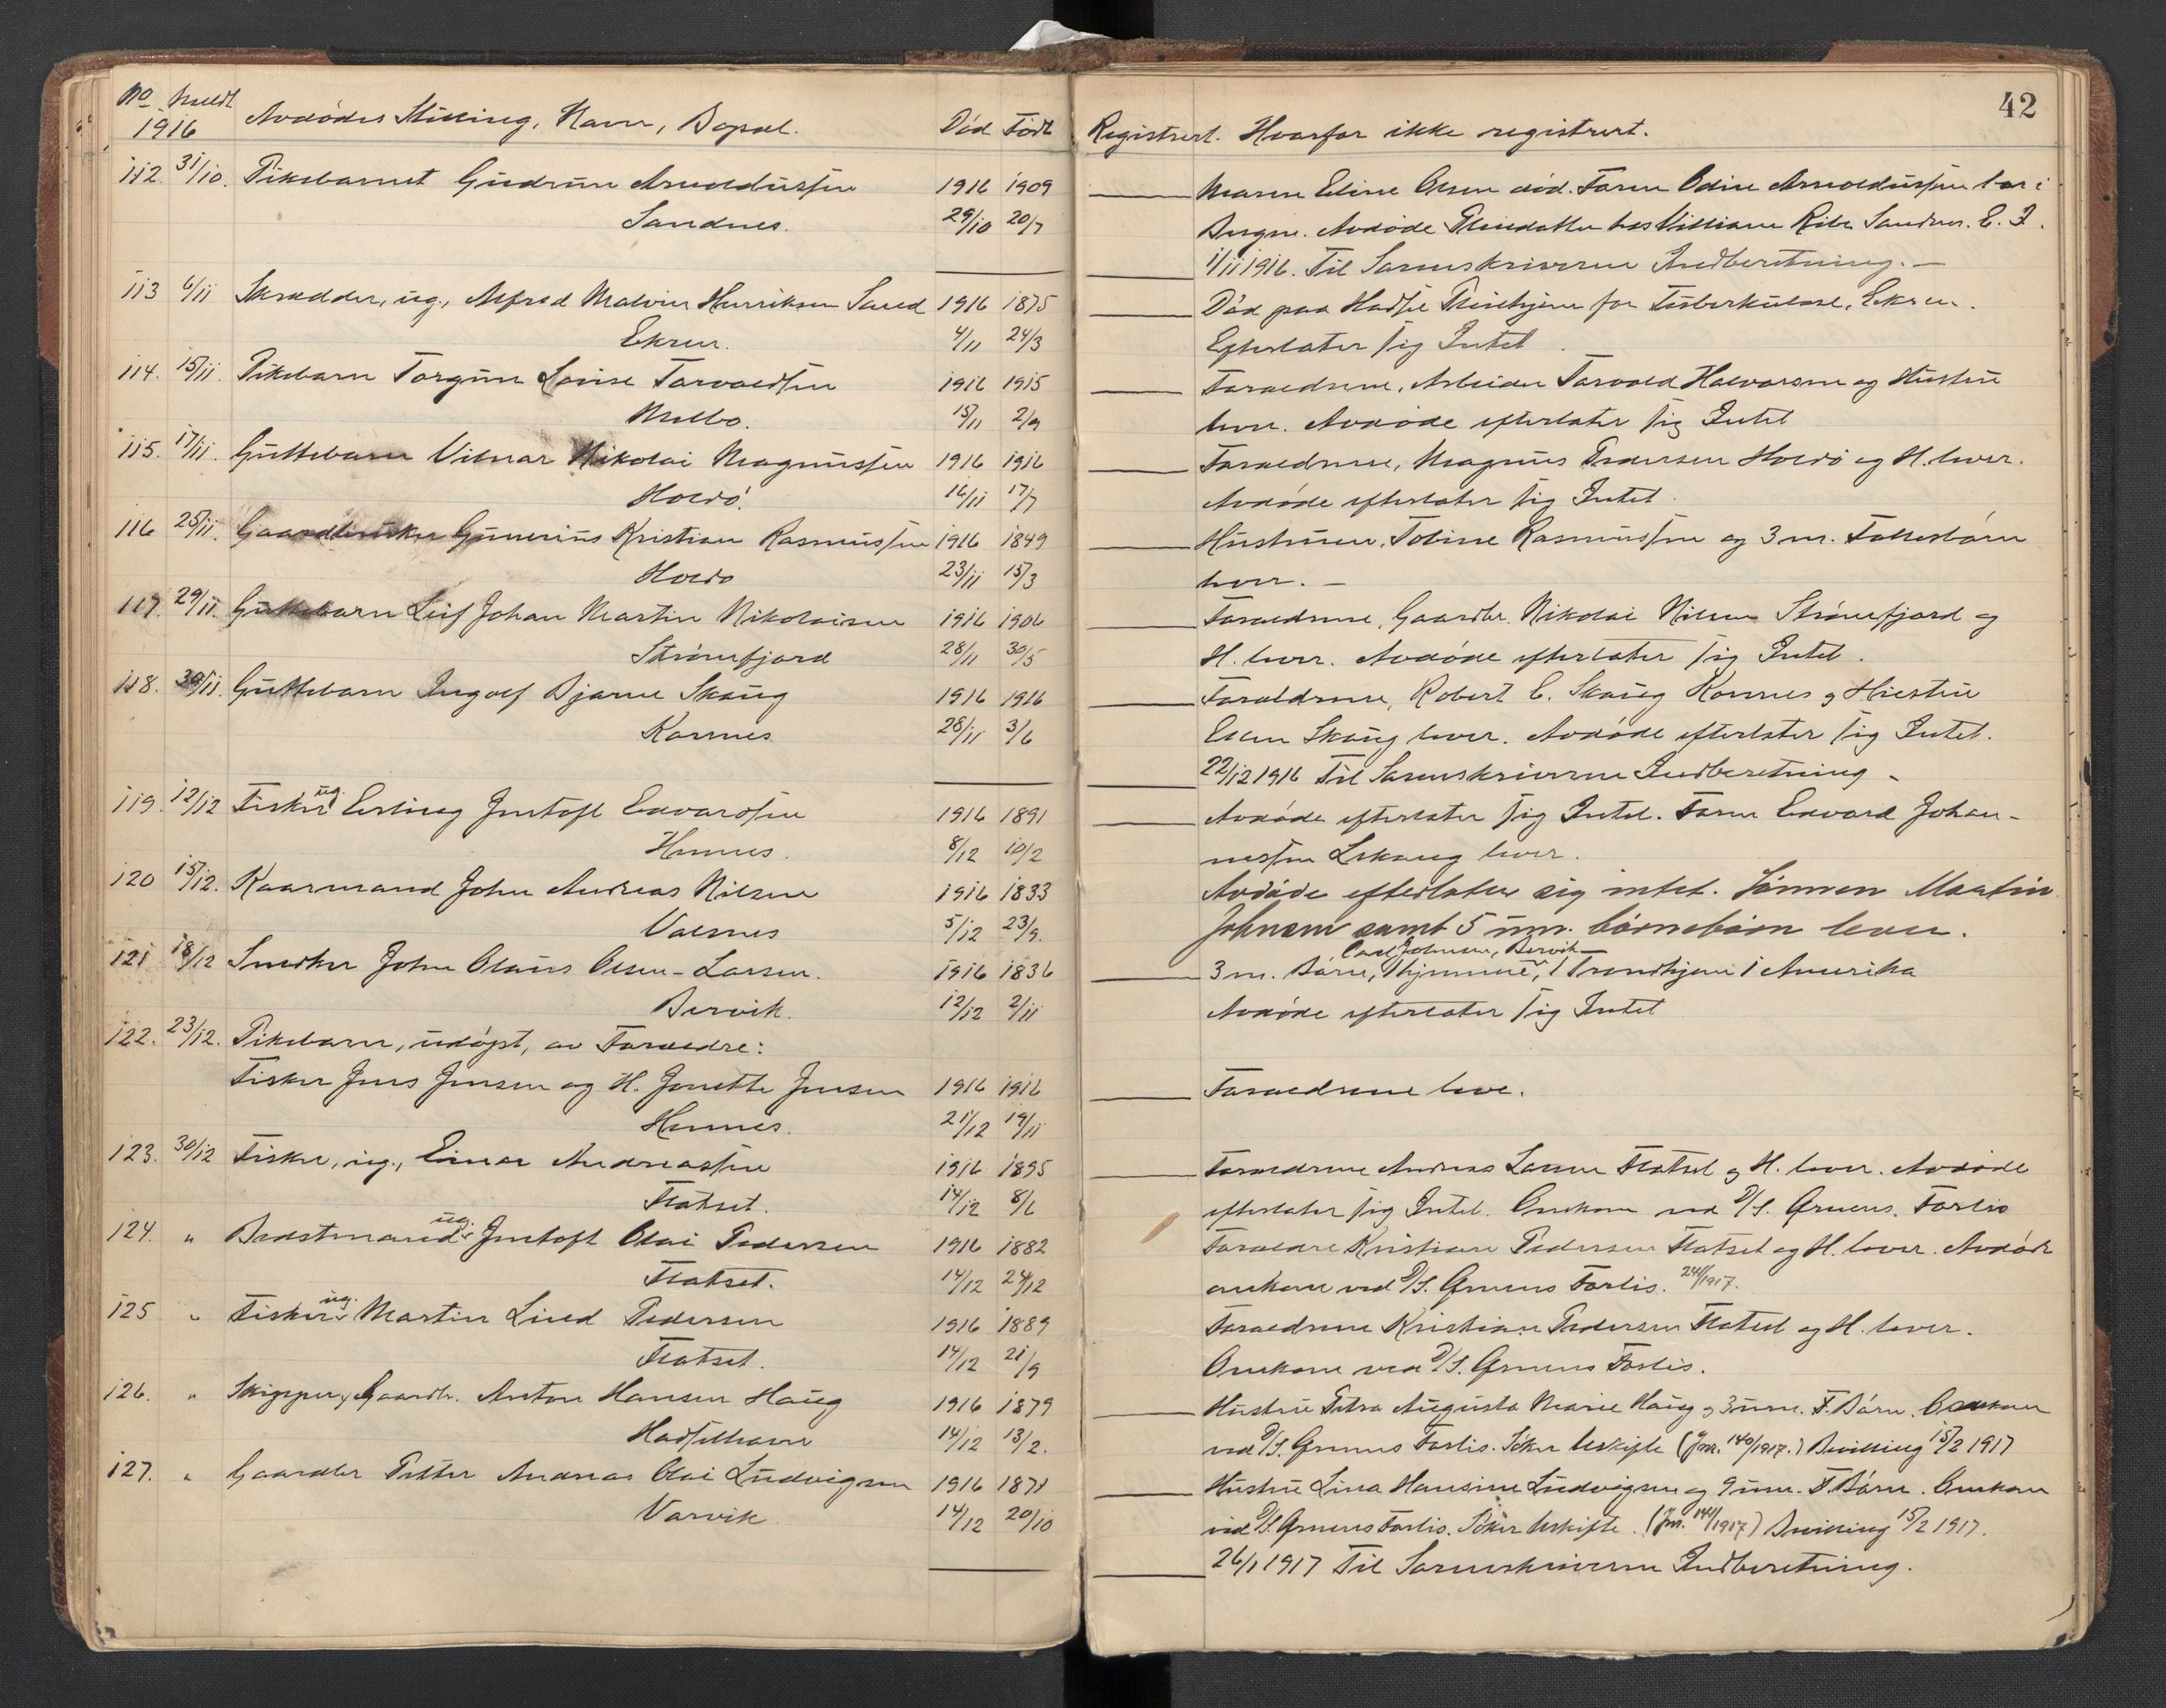 42
No Meldt Avdødes Stilling, Navn, Bopæl. Død Født Registrert. Hvorfor ikke registrert.
1916
112. 31/10. Pikebarnet Gudrun Arnoldussen 1916 1909 Moren Eline Olsen død. Faren Odin Arnoldussen bor i
Sandnes. 29/10 20/7 Bergen. Avdøde Pleiedatter hos Villiam Ribe Sandnes. E. I.
1/11 1916. Til Sorenskriveren Indberetning.
113 6/11 Skrædder, ug., Alfred Malvin Henriksen Sund 1916 1875 Død paa Hadsel Pleiehjem for Tuberkuløse, Ekren.
Ekren. 4/11 24/3 Efterlater sig Intet.
114. 15/11. Pikebarn Torgun Louise Torvaldsen 1916 1915 Foræeldrene, Arbeider Torvald Halvorsen og Hustru
Melbo. 15/11 2/9 lever. Avdøde efterlater sig Intet
115. 17/11. Guttebarn Vilmar Nikolai Magnussen 1916 1916 Forældrene, Magnus Pedersen Holdø og H. lever.
Holdø. 16/11 17/7 Avdøde efterlater sig Intet.
116 25/11. Gaardbruker Gunerius Kristian Rasmussen 1916 1849 Hustruen, Tobine Rasmussen og 3 m. Fællesbørn
Holdø 23/11 15/3 lever. –
117. 29/11. Guttebarn Leif Johan Martin Nikolaisen 1916 1906 Forældrene, Gaardbr. Nikolai Nilsen Strømfjord og
Strømfjord 28/11 30/5 H. lever. Avdøde efterlater sig Intet.
118. 30/11. Guttebarn Ingolf Bjarne Skaug 1916 1916 Forældrene, Robert C. Skaug Kornes og Hustru
Kornes 28/11 3/6 Ellen Skaug lever. Avdøde efterlater sig Intet.
22/12 1916 Til Sorenskriveren Indberetning –
119. 12/12 Fisker ug. Erling Justoft Edvardsen 1916 1891 Avdøde efterlater sig Intet. Faren Edvard Johan-
Hennes. 8/12 10/2 nessen lever.
120 15/12. Kaarmand John Andreas Nilsen 1916 1833 Avdøde efterlater sig intet. Sønnen Martin
Valsnes 5/12 23/9. Johnsen samt 5 um. børnebørn lever.
Carl Johnsen, Bervik
121 18/12 Snedker John Olaus Olsen-Larsen. 1916 1836 3 m. Børn, 1 hjemme, 1 Trondhjem 1 Amerika
Bervik. 12/12 2/11 Avdøde efterlater sig Intet
122. 23/12. Pikebarn, udøpt, av Forældre:
Fisker Jens Jensen og H. Jenette Jensen 1916 1916 Forældrene leve.
Hennes. 21/12 19/11
123. 30/12 Fisker, ug., Einar Andreassen 1916 1895 Forældrene Andreas Larsen Flatset og H. lever. Avdøde
Flatset. 14/12 8/6 efterlater sig Intet. Omkom ved D/S. Ørnens Forlis
124. " Bestmand ug. Justoft Olai Pedersen 1916 1882 Forældre Kristian Pedersen Flatset og H. lever. Avdøde
Flatset. 14/12 24/12 omkom ved D/S. Ørnens Forlis. 24/1 1917.
125 " Fisker ug. Martin Lind Pedersen 1916 1889 Forældrene Kristian Pedersen Flatset og H. lever.
Flatset. 14/12 21/9 Omkom ved D/S. Ørnens Forlis.
126. " Skipper, Gaardbr. Anton Hansen Haug 1916 1879 Hustru Petra Augusta Marie Haug og 3 um. F. Børn. Omkom
Hadselhavn 14/12 13/2. ved D/S. Ørnens Forlis. Søker Uskifte (Jnr. 140/1917.) Bevilling 15/2 1917
127. " Gaardbr Petter Andreas Olai Ludvigsen 1916 1871 Hustru Lina Hansine Ludvigsen og 9 um. F. Børn. Omkom
Varvik 14/12 20/10 ved D/S. Ørnens Forlis. Søker Uskifte. (Jnr. 141/1917) Bevilling 15/2 1917.
26/1 1917 Til Sorenskriveren Indberetning.